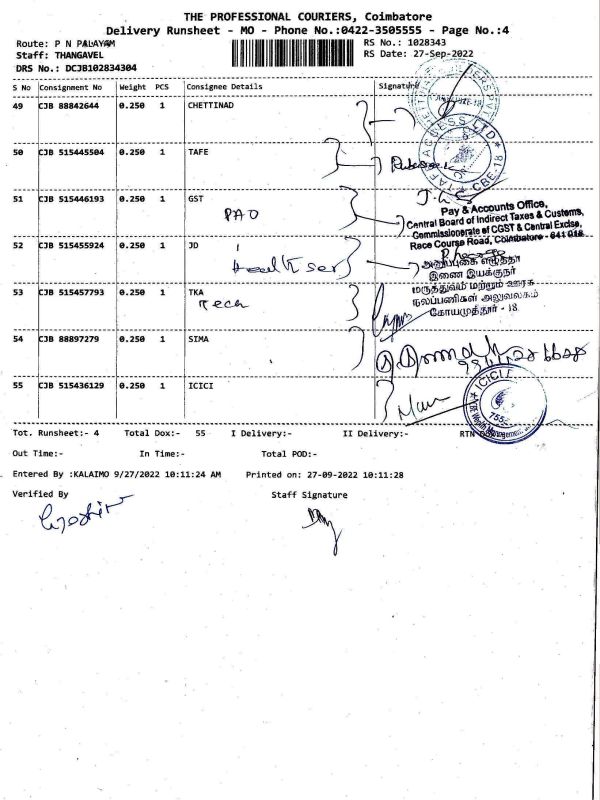 THE PROFESSIONAL COURIERS, Coimbatore
Delivery Runsheet - MO - Phone No.:0422-3505555 - Page No.:4
Route: P N PALAYAM
RS No.: 1028343
Staff: THANGAVEL
RS Date: 27-Sep-2022
DRS No.: DCJB102834304
S No Consignment No Weight PCS Consignee Details Signature
49 CJB 88842644 0.250 1 CHETTINAD
50 CJB 515445504 0.250 1 TAFE
TAFE ACCESS LTD * CBE-18 *
51 CJB 515446193 0.250 1 GST
PAO
Pay & Accounts Office,
Central Board of Indirect Taxes & Customs,
Commissionerate of CGST & Central Excise,
Race Course Road, Coimbatore - 641 018
52 CJB 515455924 0.250 1 JD
இணை இயக்குநர்
மருத்துவம் மற்றும் ஊரக
நலப்பணிகள் அலுவலகம்
கோயமுத்தூர் - 18.
53 CJB 515457793 0.250 1 TKA
Tech
54 CJB 88897279 0.250 1 SIMA
55 CJB 515436129 0.250 1 ICICI
ICICI
Tot. Runsheet:- 4 Total Dox:- 55 I Delivery:- II Delivery:- RTN
Out Time:- In Time:- Total POD:-
Entered By :KALAIMO 9/27/2022 10:11:24 AM Printed on: 27-09-2022 10:11:28
Verified By Staff Signature